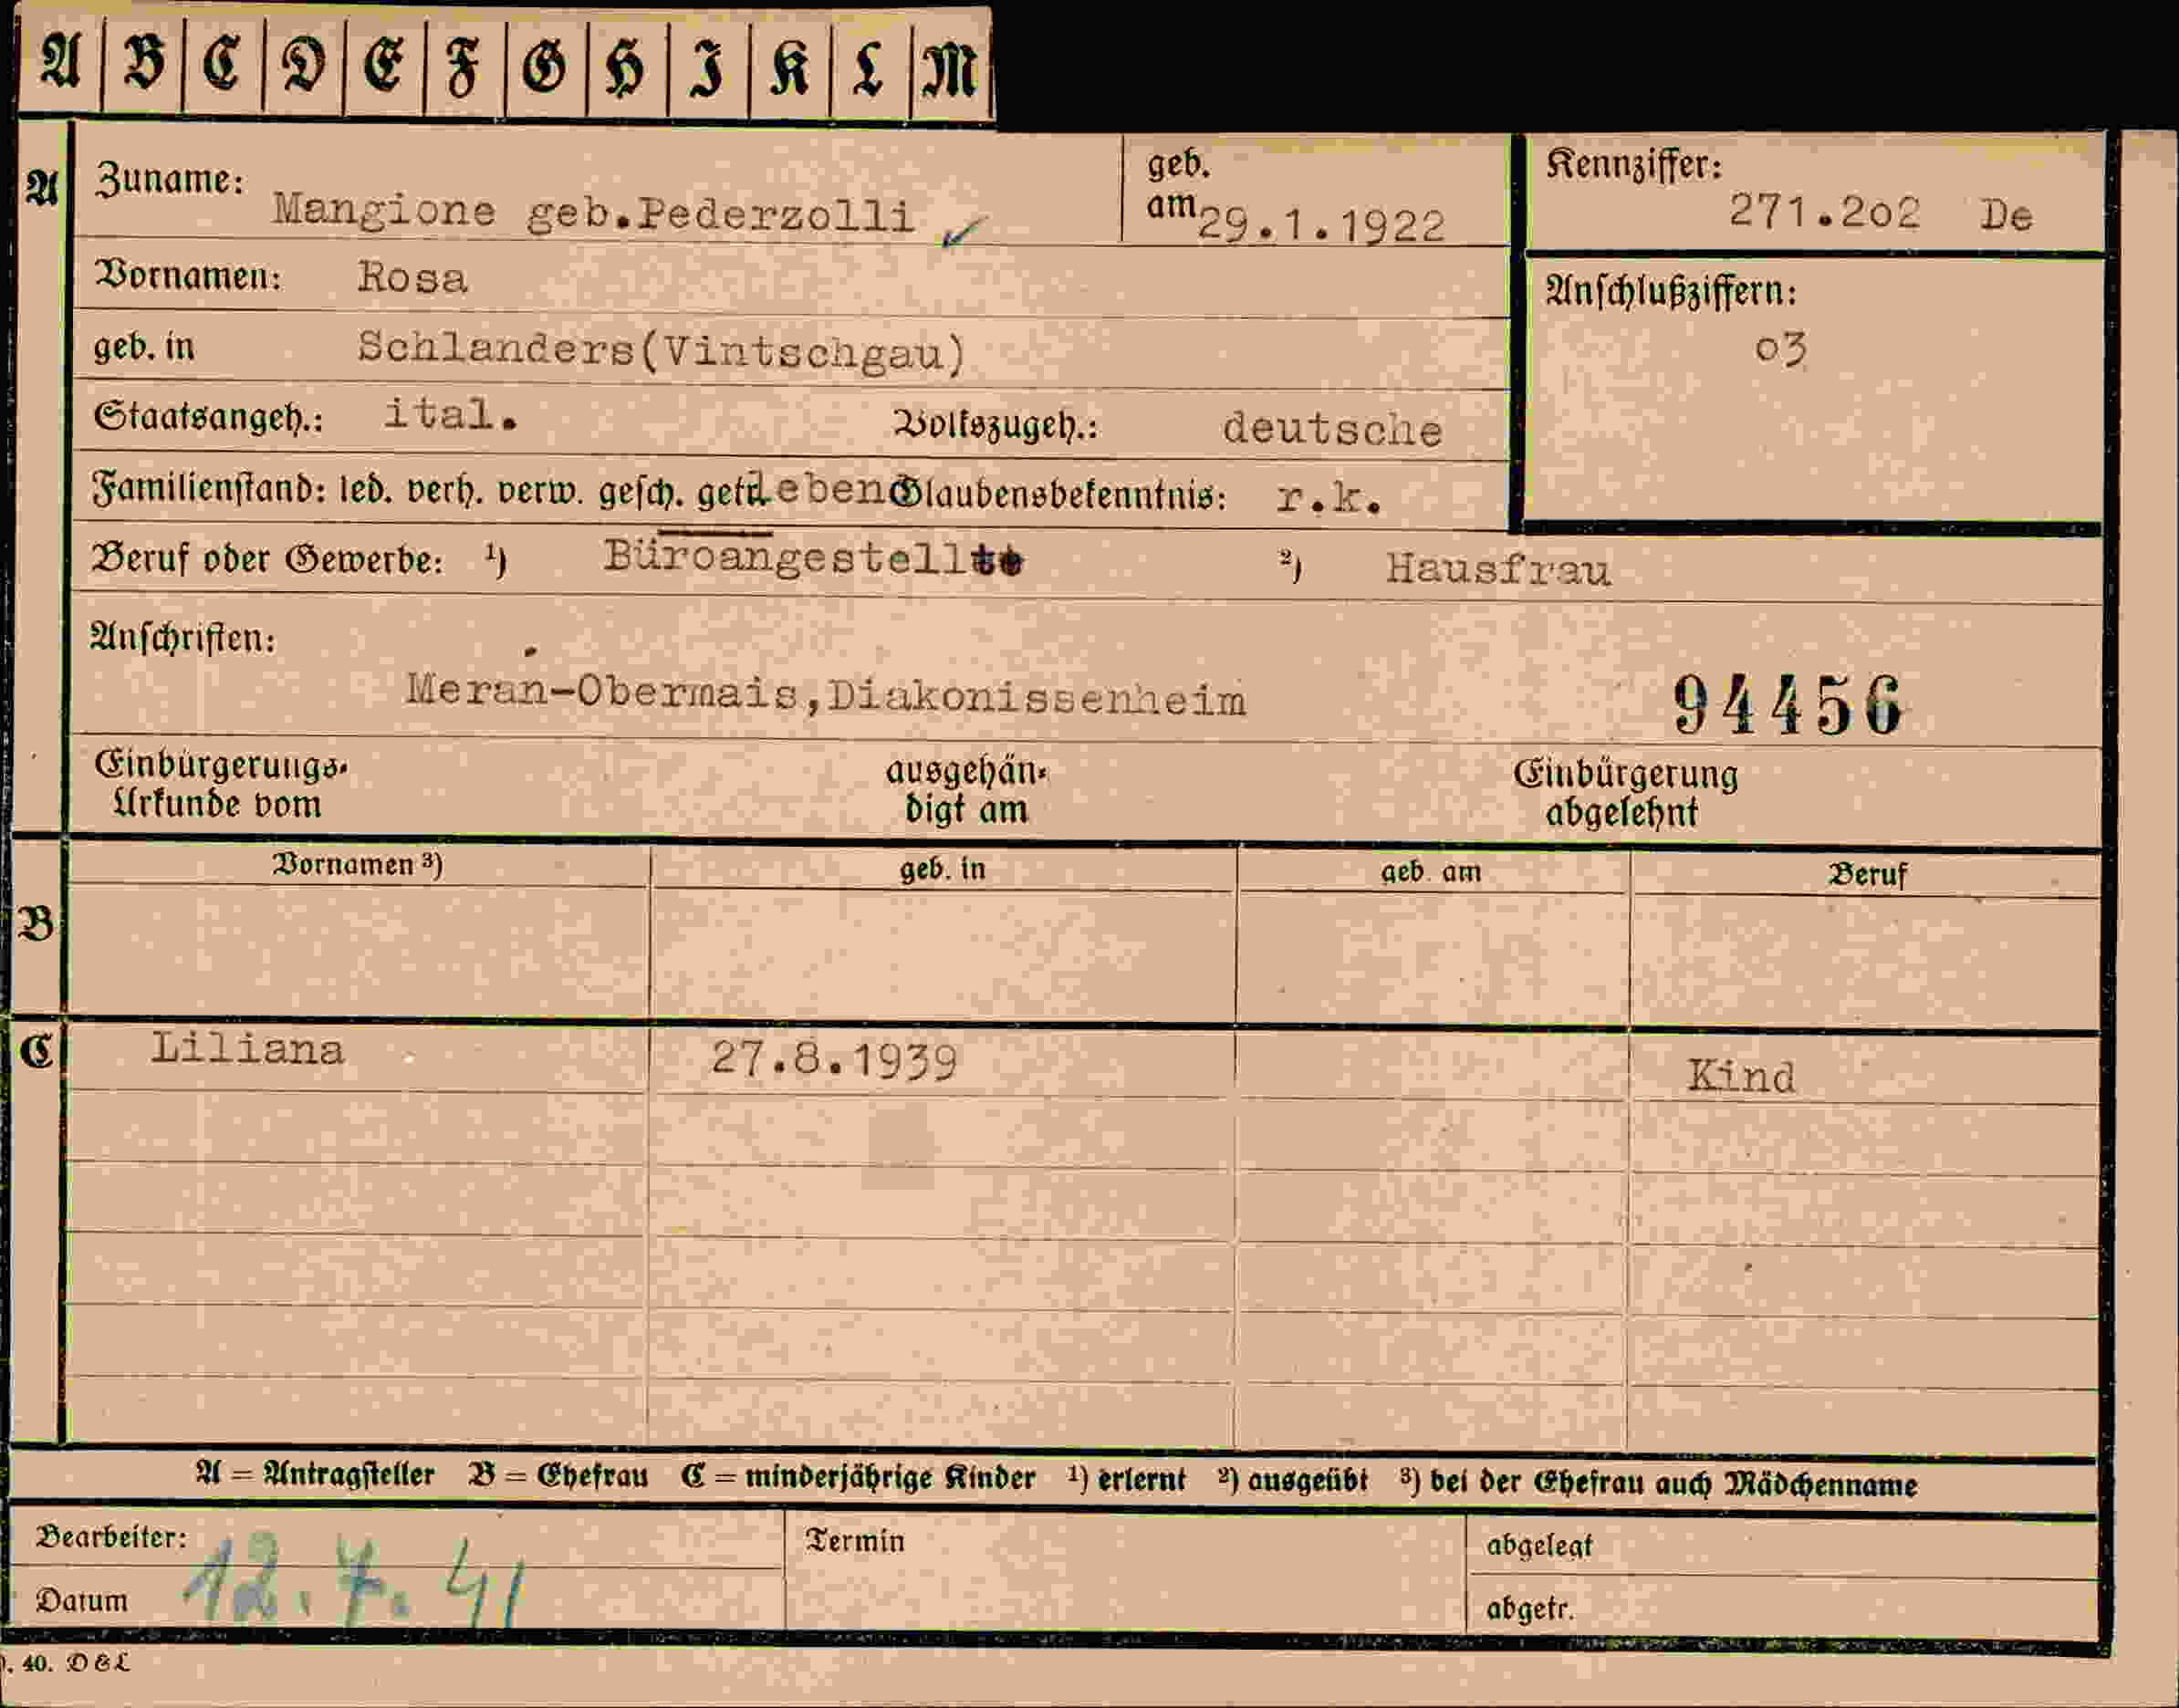 A B C D E F G H I K L M
A Zuname: Mangione geb.Pederzolli ✓ geb. am 29.1.1922 Kennziffer: 271.2o2 De
Vornamen: Rosa
Anschlußziffern:
geb. in Schlanders(Vintschgau) o3
Staatsangeh.: ital. Volkszugeh.: deutsche
Familienstand: led. verh. verw. gesch. getr. Lebend Glaubensbekenntnis: r.k.
Beruf oder Gewerbe: 1) Büroangestellte 2) Hausfrau
Anschriften:
Meran-Obermais,Diakonissenheim 94456
Einbürgerungs- ausgehän- Einbürgerung
Urkunde vom digt am abgelehnt
Vornamen 3) geb. in geb. am Beruf
B
C Liliana 27.8.1939 Kind
A = Antragsteller B = Ehefrau C = minderjährige Kinder 1) erlernt 2) ausgeübt 3) bei der Ehefrau auch Mädchenname
Bearbeiter: Termin abgelegt
Datum 12.7.41 abgetr.
. 40. D&L